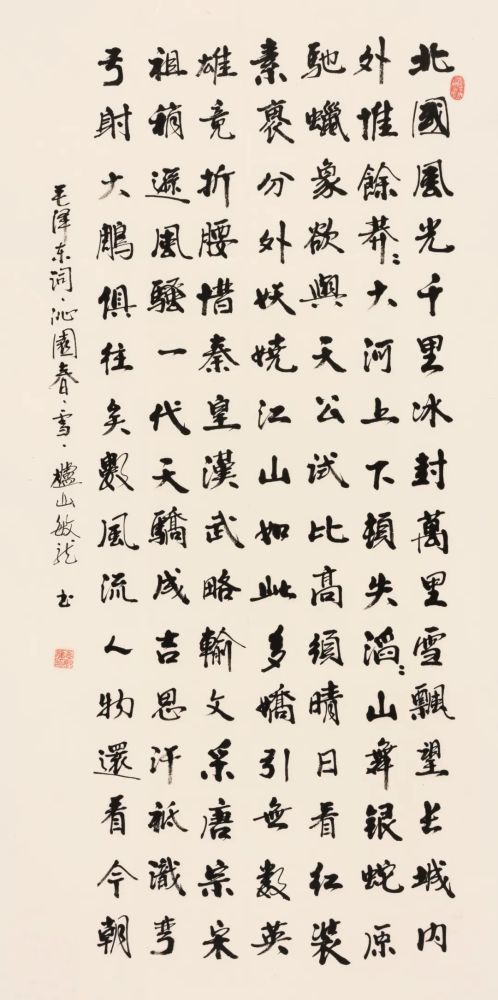 北國風光千里冰封萬里雪飄望长城内
外惟餘莽〻大河上下頓失滔〻山舞銀蛇原
馳蠟象欲與天公試比高須晴日看红裝
素裹分外妖嬈江山如此多嬌引無數英
雄竟折腰惜秦皇漢武略輸文采唐宗宋
祖稍遜風騷一代天驕成吉思汗祗識彎
弓射大鵰俱往矣數風流人物還看今朝
毛泽东词·沁園春·雪·山敏龙书